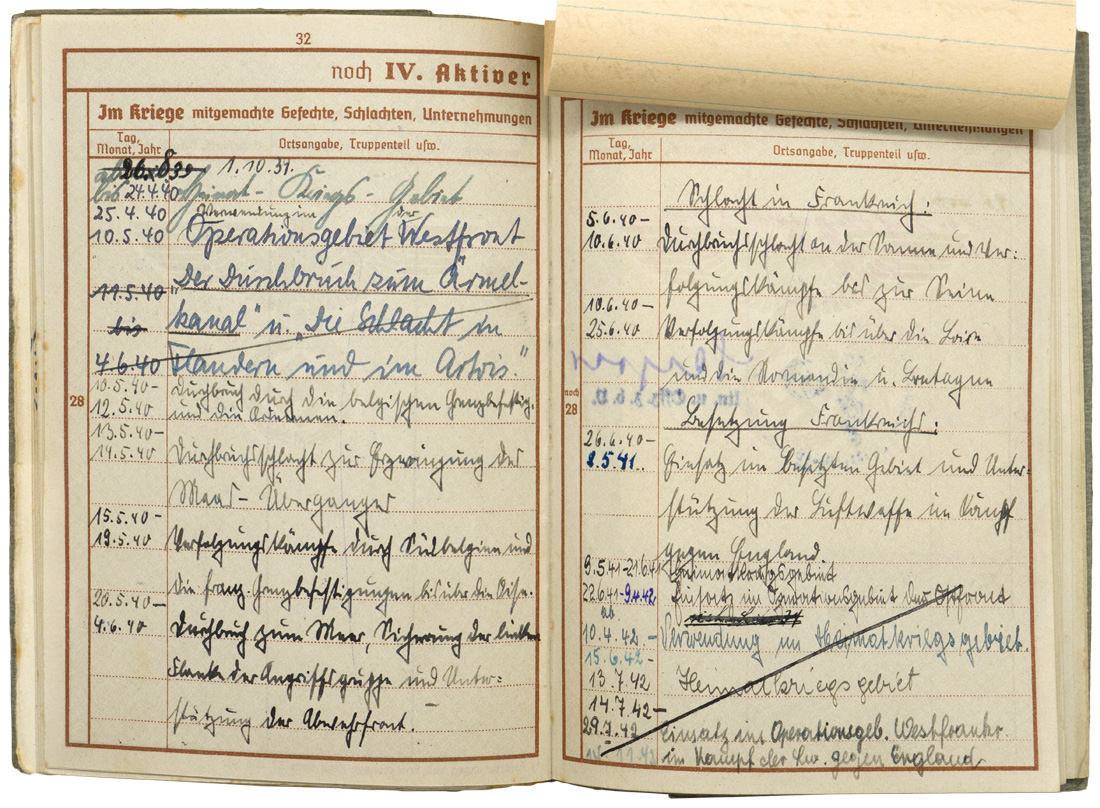 32
noch IV. Aktiver
Im Kriege mitgemachte Gefechte, Schlachten, Unternehmungen
Tag, Monat, Jahr
Ortsangabe, Truppenteil usw.
26.8.39 1.10.39.
bis 24.4.40 Heimat-Kriegs-Gebiet
25.4.40 Verwendung im der
10.5.40 Operationsgebiet Westfront
11.5.40 "Der Durchbruch zum Ärmel-
bis kanal" u. "Die Schlacht in
4.6.40 Flandern und im Artois."
28
10.5.40- Durchbruch durch die belgischen Grenzbefestig.
12.5.40 und die Ardennen.
13.5.40-
14.5.40 Durchbruchsschlacht zur Erzwingung des
Maas-Überganges
15.5.40-
19.5.40 Verfolgungskämpfe durch Südbelgien und
die franz. Grenzbefestigungen bis über die Oise.
20.5.40-
4.6.40 Durchbruch zum Meer, Sicherung der linken
Flanke der Angriffsgruppe und Unter-
stützung der Abwehrfront.
Im Kriege mitgemachte Gefechte, Schlachten, Unternehmungen
Tag, Monat, Jahr
Ortsangabe, Truppenteil usw.
Schlacht in Frankreich:
5.6.40-
10.6.40 Durchbruchsschlacht an der Somme und Ver-
folgungskämpfe bis zur Seine
10.6.40-
25.6.40 Verfolgungskämpfe bis über die Loire
und die Normandie u. Bretagne
noch 28
Besetzung Frankreichs:
26.6.40-
8.5.41. Einsatz im besetzten Gebiet und Unter-
stützung der Luftwaffe im Kampf
gegen England
9.5.41-21.6.41 Heimatkriegsgebiet
22.6.41-9.4.42 Einsatz im Operationsgebiet der Ostfront
ab
10.4.42- Verwendung im Heimatkriegsgebiet.
15.6.42-
13.7.42 Heimatkriegsgebiet
14.7.42-
29.7.42 Einsatz im Operationsgeb. Westfrankr.
im Kampf der Lw. gegen England